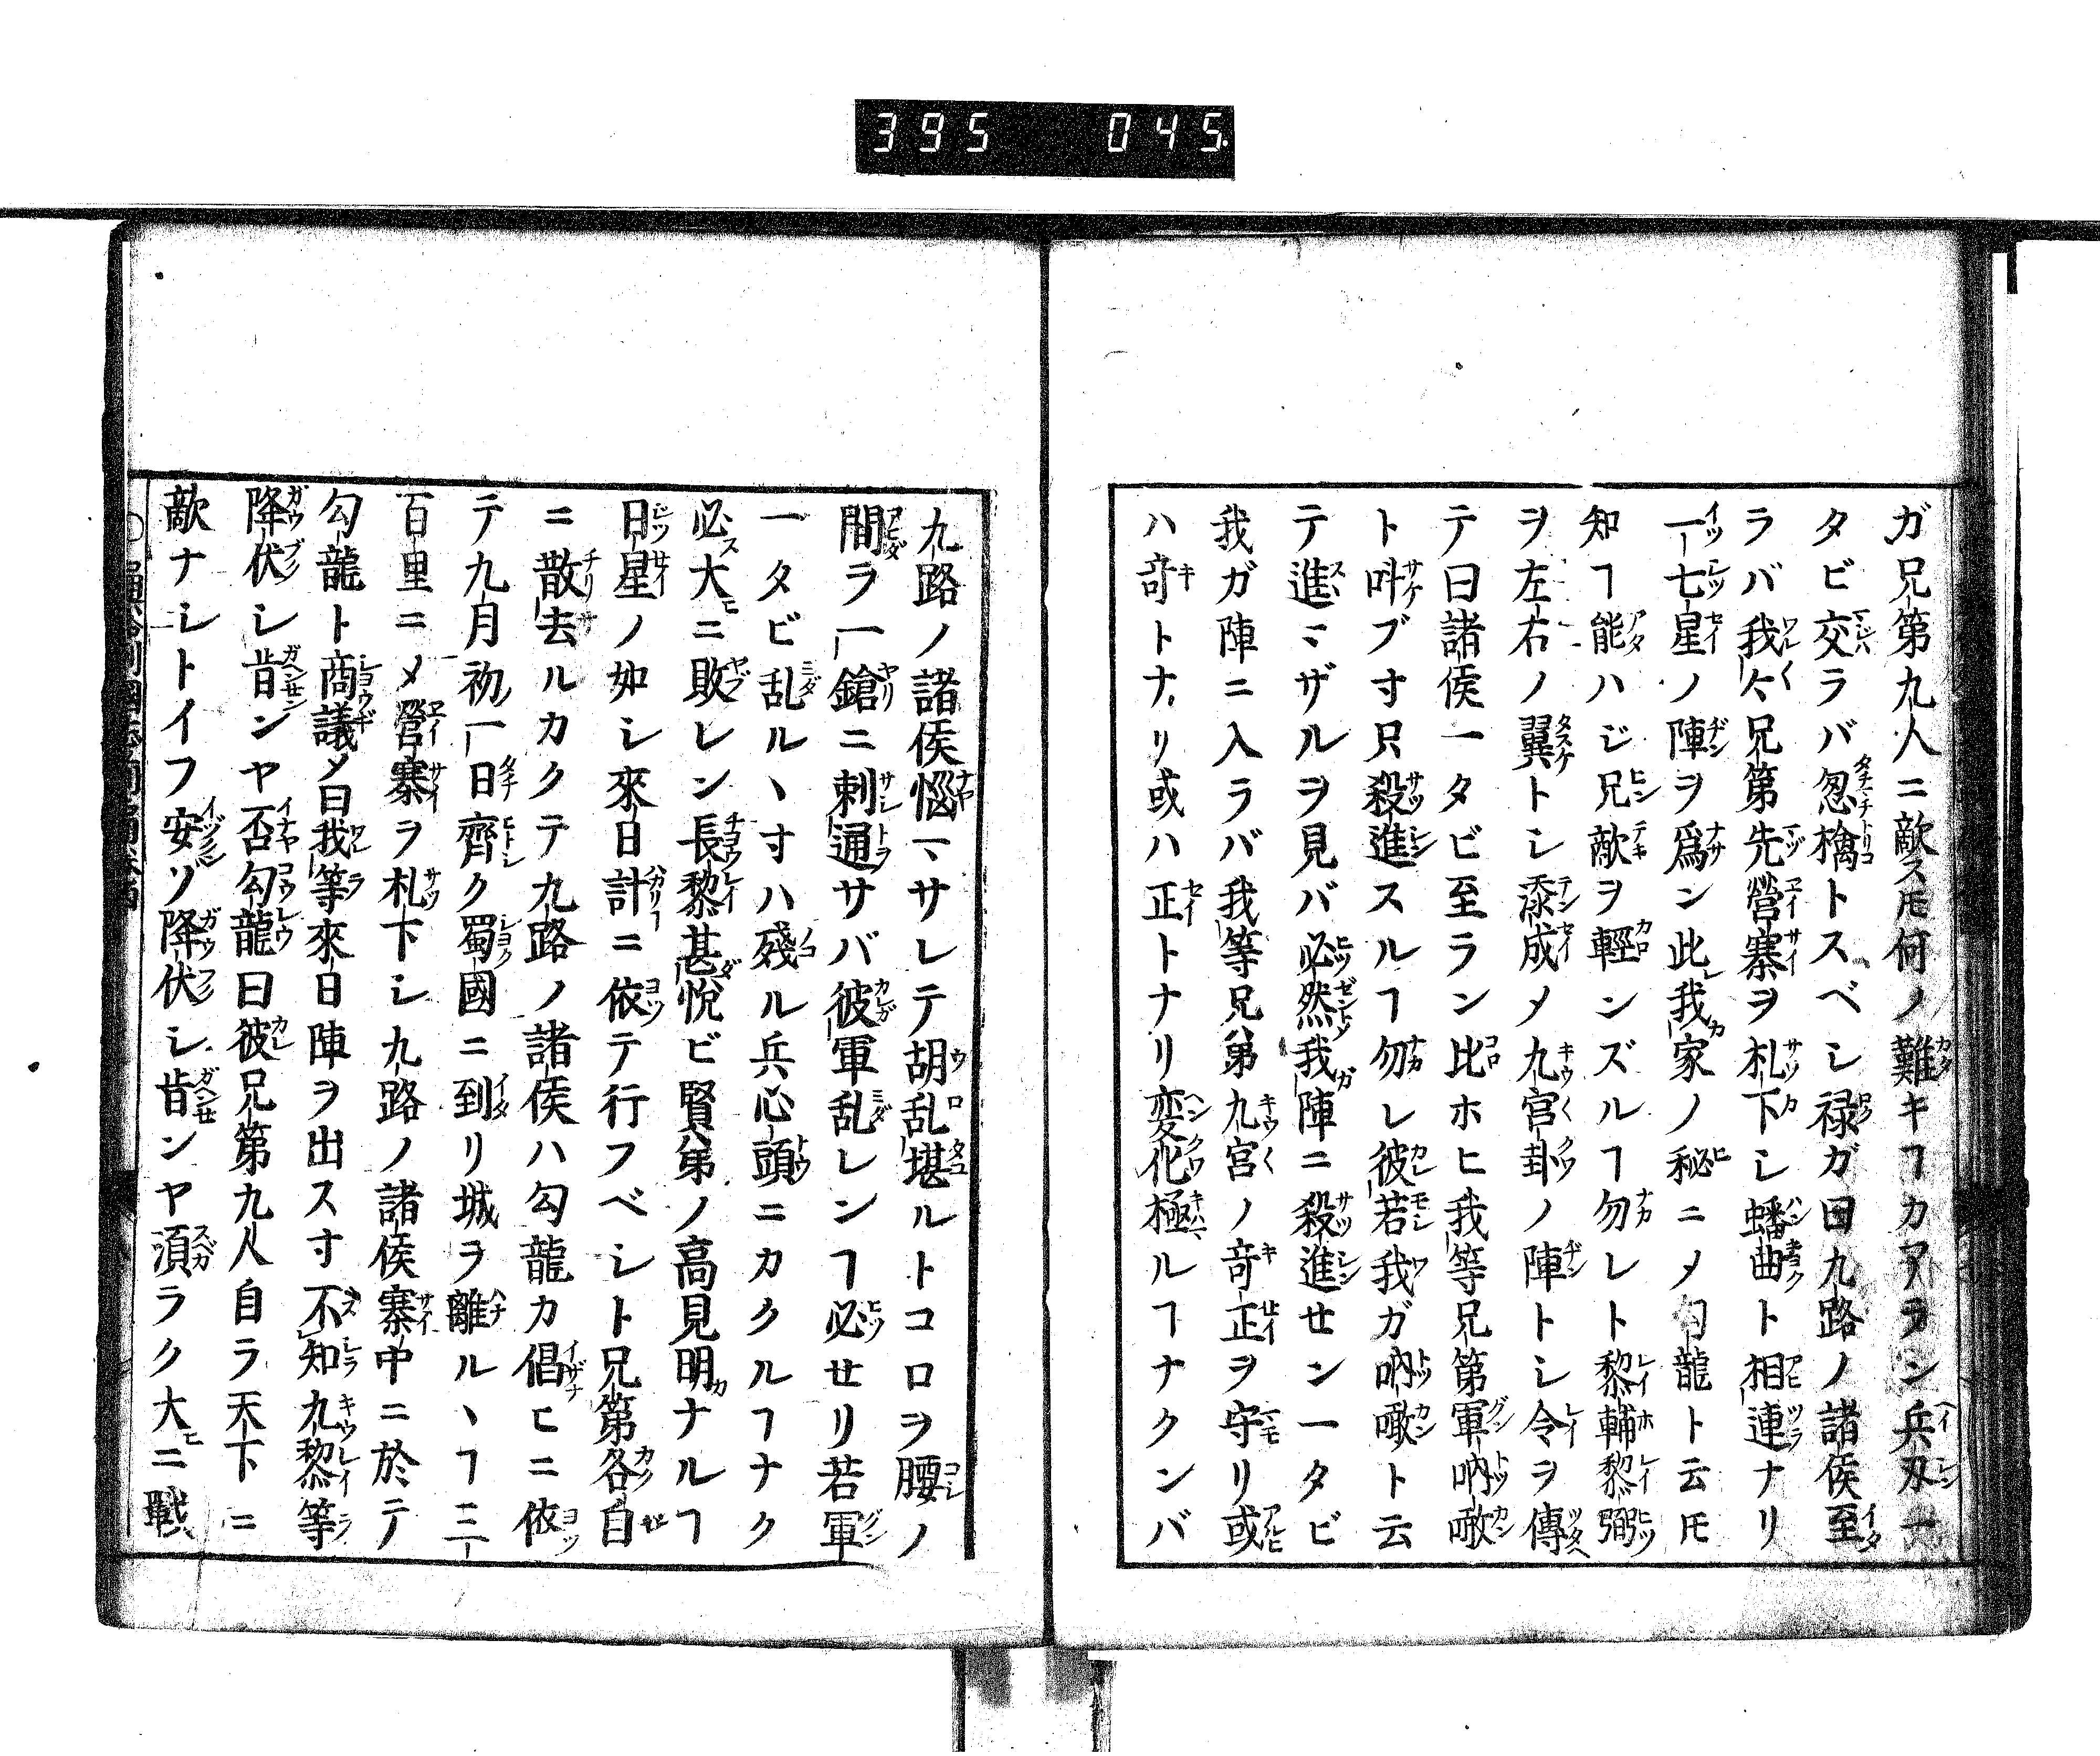 395 045
ガ兄第九人ニ敵スモ何ノ難キヿカアラン兵刄一
タビ交ラバ忽檎トスベシ禄ガ曰九路ノ諸侯至
ラバ我々兄第先營寨ヲ札下シ蟠曲ト相連ナリ
一七星ノ陣ヲ爲ン此我家ノ秘ニメ勾龍ト云モ
知ヿ能ハジ兄敵ヲ輕ンズルヿ勿レト黎輔黎弼
ヲ左右ノ翼トシ添成メ九宮卦ノ陣トシ令ヲ傳
テ曰諸侯一タビ至ラン比ホヒ我等兄第軍吶噉
ト呌ブ寸只殺進スルヿ勿レ彼若我ガ吶噉ト云
テ進ミザルヲ見バ必然我陣ニ殺進セン一タビ
我ガ陣ニ入ラバ我等兄第九宮ノ竒正ヲ守リ或
ハ竒トナリ或ハ正トナリ変化極ルヿナクンバ
九路ノ諸侯惱マサレテ胡乱堪ルトコロヲ腰ノ
間ラ一鎗ニ刺通サバ彼軍乱レンヿ必セリ若軍
一タビ乱ルヽ寸ハ殘ル兵心頭ニカクルヿナク
必大ニ敗レン長黎甚悅ビ賢第ノ高見明ナルヿ
日星ノ如シ來日計ニ依テ行フベシト兄第各自
ニ散去ルカクテ九路ノ諸侯ハ勾龍カ倡ヒニ依
テ九月初一日齊ク蜀國ニ到リ城ヲ離ルヽヿ三
百里ニメ營寨ヲ札下シ九路ノ諸侯寨中ニ於テ
勾龍ト商議メ曰我等來日陣ヲ出ス寸不知九黎等
降伏シ肯ンヤ否勾龍曰彼兄第九人自ラ天下ニ
敵ナシトイフ安ゾ降伏シ肯ンヤ湏ラク大ニ戰